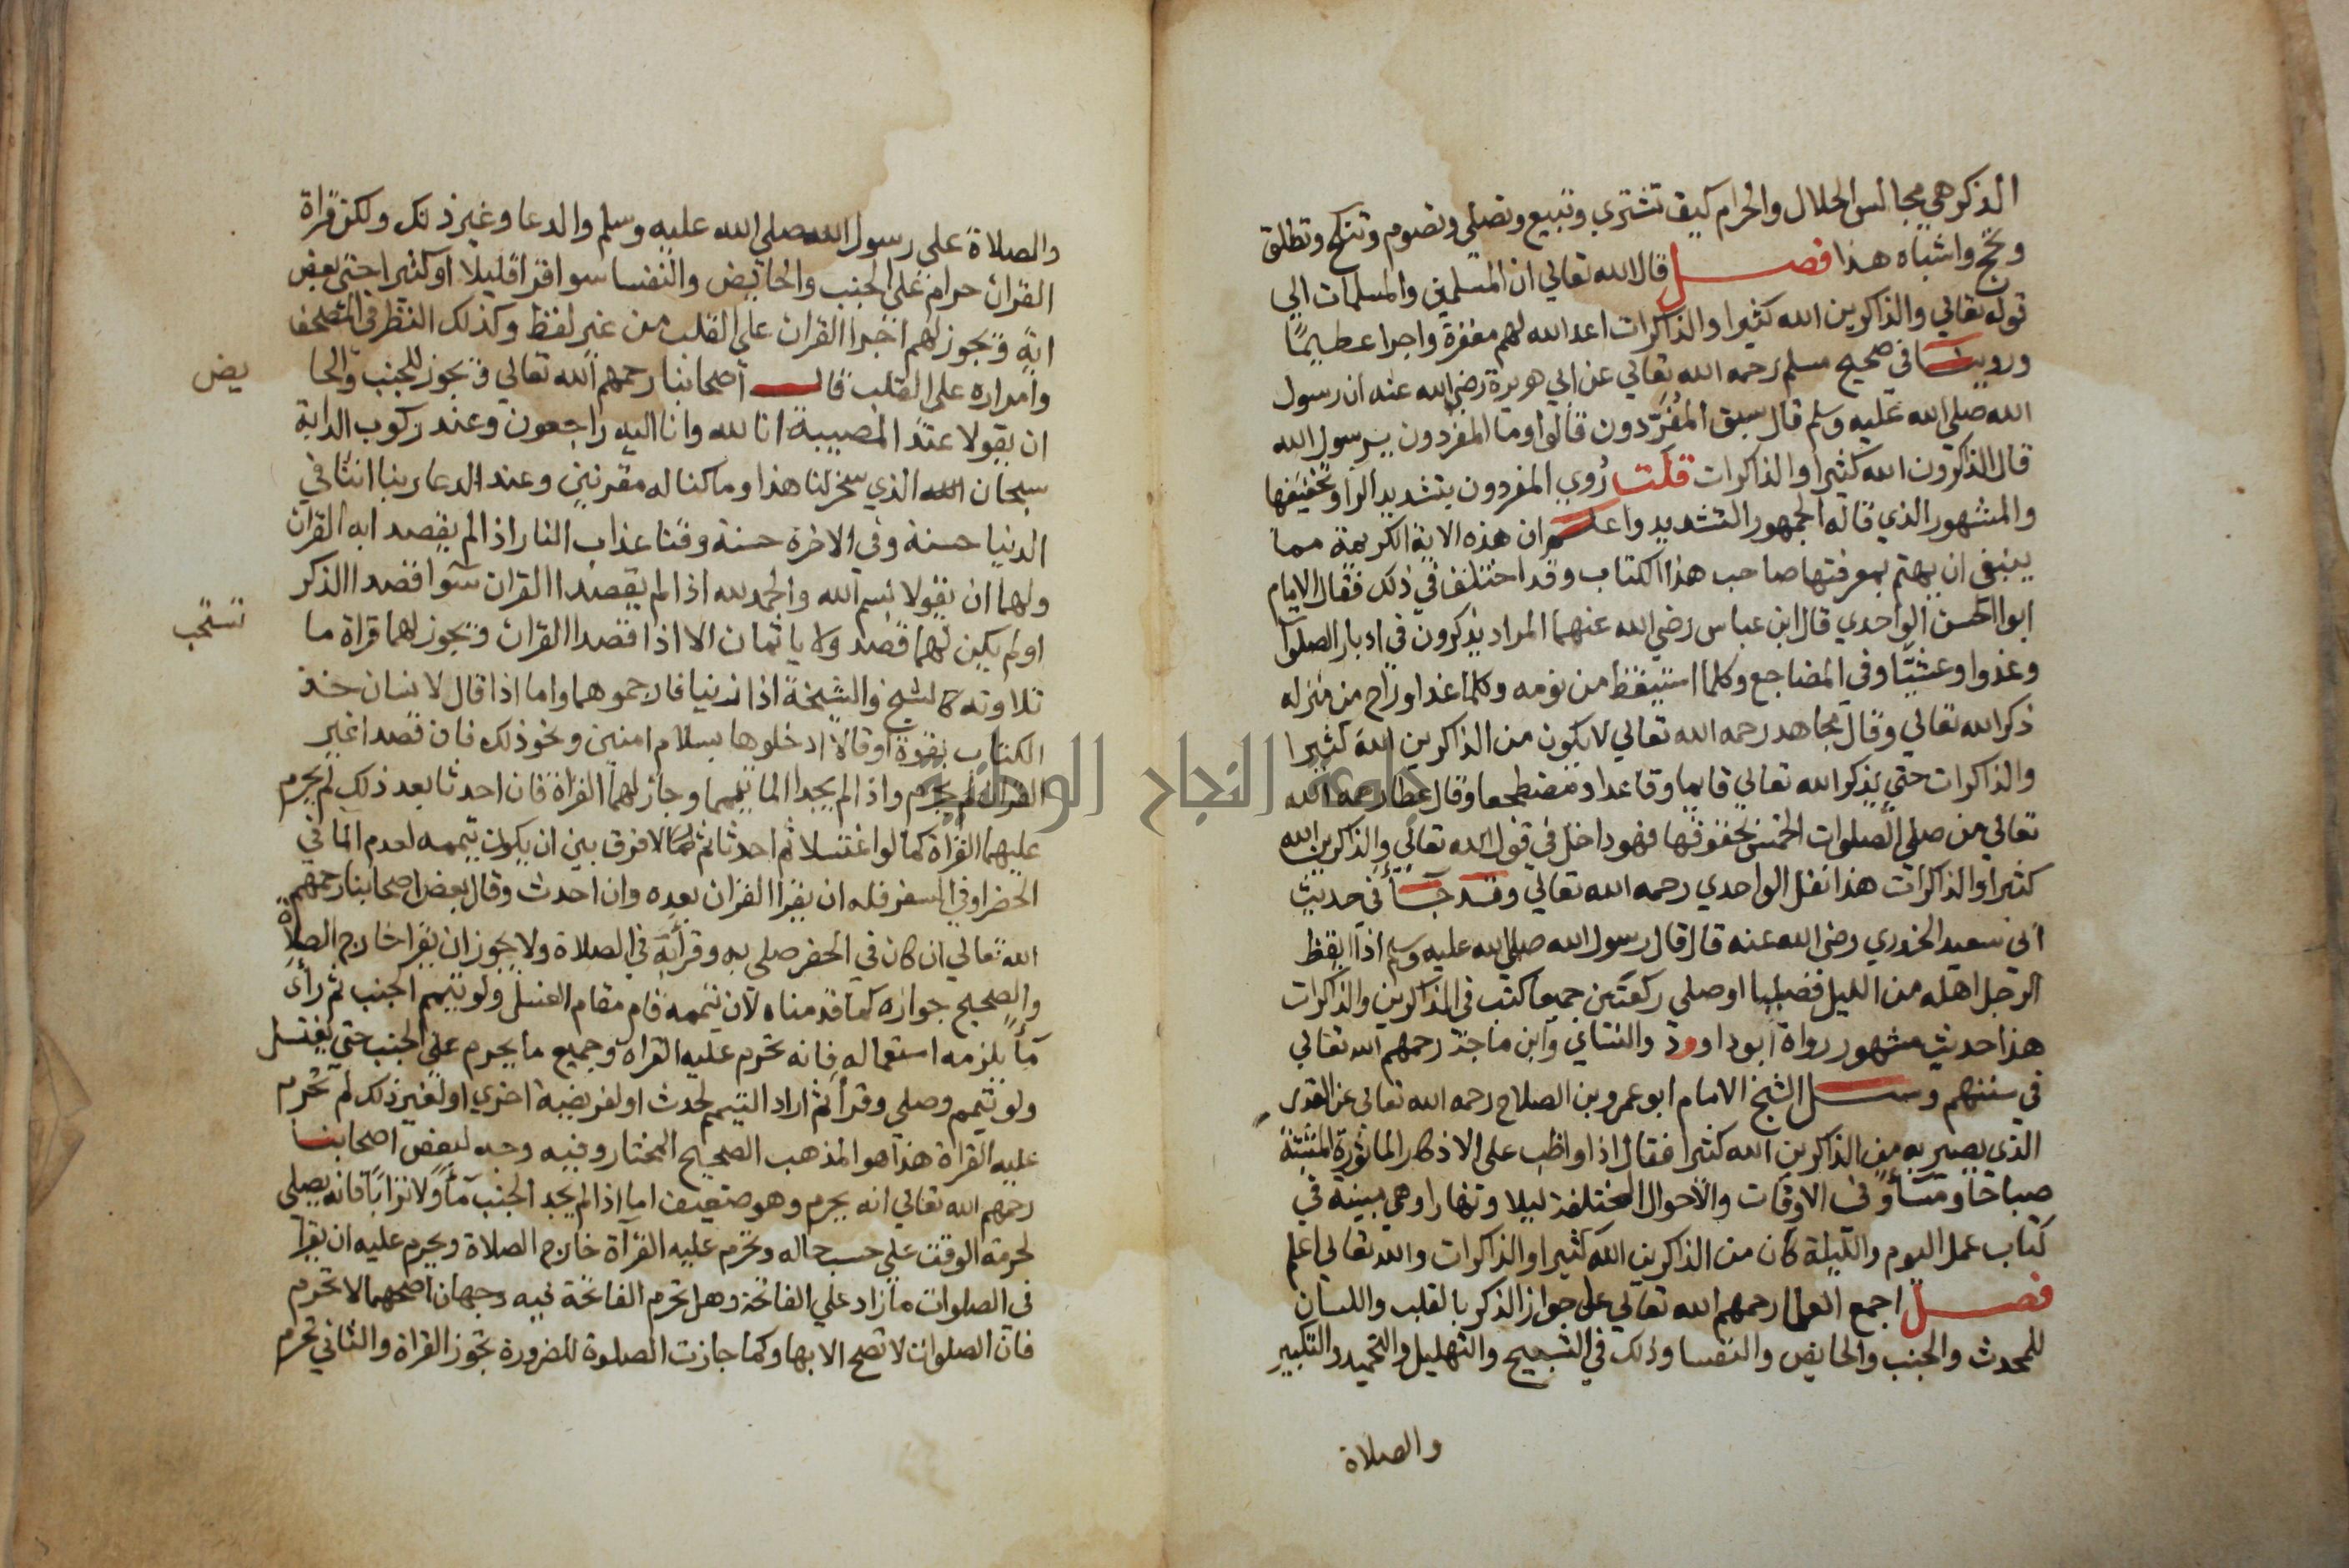 الذكر هي مجالس الحلال والحرام كيف تشتري وتبيع وتصلي وتصوم وتنكح وتطلق
وتحج واشباه هذا فصل قال الله تعالي ان المسلمين والمسلمات الي
قوله تعالي والذاكرين الله كثيرا والذاكرات اعد الله لهم مغفرة واجرا عظيمًا
وروينا في صحيح مسلم رحمه الله تعالي عن ابي هريرة رضي الله عنه ان رسول
الله صلي الله عليه وسلم قال سبق المُفَرّدون قالوا وما المفردون يرسول الله
قال الذاكرون الله كثيرا والذاكرات قلت رُوي المفردون بتشديد الرا وتخفيفها
والمشهور الذي قاله الجمهور التشديد واعلم ان هذه الاية الكريمة مما
ينبغي ان يهتم بمعرفتها صاحب هذا الكتاب وقد اختلف في ذلك فقال الامام
ابو الحسن الواحدي قال ابن عباس رضي الله عنهما المراد يذكرون في ادبار الصلوا
وغدوا وعشيّا وفي المضاجع وكلما استيقظ من نومه وكلما غدا وراح من منزله
ذكر الله تعالي وقال مجاهد رحمه الله تعالي لا يكون من الذاكرين الله كثيرا
والذاكرات حتي يذكر الله تعالي قايما وقاعدا ومضطجعا وقال عطا رحمه الله
تعالي من صلي الصلوات الخمس بحقوقها فهو داخل في قول الله تعالي والذاكرين الله
كثيرا والذاكرات هذا نقل الواحدي رحمه الله تعالي وقد جآ في حديث
ابي سعيد الخدري رضي الله عنه قال قال رسول الله صلي الله عليه وسلم اذا ايقظ
الرجل اهله من الليل فصليا او صلي ركعتين جميعا كتب في الذاكرين والذاكرات
هذا حديث مشهور رواة ابو داوود والنسائي وابن ماجة رحمهم الله تعالي
في سننهم وسئل الشيخ الامام ابو عمرو بن الصلاح رحمه الله تعالي عن القدر
الذي يصير به من الذاكرين الله كثيرا فقال اذا واظب علي الاذكار الماثورة المثبتة
صباحا ومسآ وفي الاوقات والاحوال المختلفة ليلا ونهارا وهي مبينة في
كتاب عمل اليوم والليلة كان من الذاكرين الله كثيرا والذاكرات والله تعالي اعلم
فصل اجمع العلما رحمهم الله تعالي علي جواز الذكر بالقلب واللسان
للمحدث والجنب والحايض والنفسا وذلك في التسبيح والتهليل والتحميد والتكبير
والصلاة
والصلاة علي رسول الله صلي الله عليه وسلم والدعا وغير ذلك ولكن قراة
القران حرام علي الجنب والحايض والنفسا سوا قرا قليلا او كثيرا حتي بعض
اية ويجوز لهم اجرا القران علي القلب من غير لفظ وكذلك النظر في المصحف
وامراره علي القلب قال اصحابنا رحمهم الله تعالي ويجوز للجنب والحا
يض
ان يقولا عند المصيبة انا لله وانا اليه راجعون وعند ركوب الدابة
سبحان الله الذي سخر لنا هذا وما كنا له مقرنين وعند الدعا ربنا اتنا في
الدنيا حسنة وفي الاخرة حسنة وقنا عذاب النار اذا لم يقصدا به القران
ولهما ان يقولا بسم الله والحمد لله اذا لم يقصدا القران سوا قصدا الذكر
تستحب
او لم يكن لهما قصد ولا ياثمان الا اذا قصدا القران ويجوز لهما قراة ما
تلاوته كالشيخ والشيخة اذا زنيا فارجموهما واما اذا قال لانسان خذ
الكتاب بقوة او قالا ادخلوها بسلام امنين ونحو ذلك فان قصدا غير
القران لم يحرم واذا لم يجدا الما تيمما وجاز لهما القراة فان احدثا بعد ذلك لم يحرم
عليهما القراة كما لو اغتسلا ثم احدثا ثم لا فرق بين ان يكون تيممه لعدم الما في
الحضر او في السفر فله ان يقرا القران بعده وان احدث وقال بعض اصحابنا رحمهم
الله تعالي ان كان في الحضر صلي به وقرأ به في الصلاة ولا يجوز ان يقرا خارج الصلاة
والصحيح جوازه كما قدمناه لان تيممه قام مقام الغسل ولو تيمم الجنب ثم رأى
مآ يلزمه استعماله فانه تحرم عليه القراه وجميع ما يحرم علي الجنب حتي يغتسل
ولو تيمم وصلي وقرأ ثم اراد التيمم لحدث او لفريضة اخري او لغير ذلك لم تحرم
عليه القراة هذا هو المذهب الصحيح المختار وفيه وجه لبعض اصحابنا
رحمهم الله تعالي انه يحرم وهو ضعيف اما اذا لم يجد الجنب مآ ولا ترابًا فانه يصلي
لحرمة الوقت علي حسب حاله وتحرم عليه القرآة خارج الصلاة ويحرم عليه ان يقرا
في الصلوات ما زاد علي الفاتحة وهل تحرم الفاتحة فيه وجهان اصحهما لا تحرم
فان الصلوات لا تصح الا بها وكما جازت الصلوة للضرورة تجوز القراة والثاني تحرم
جامعة النجاح الوطنية